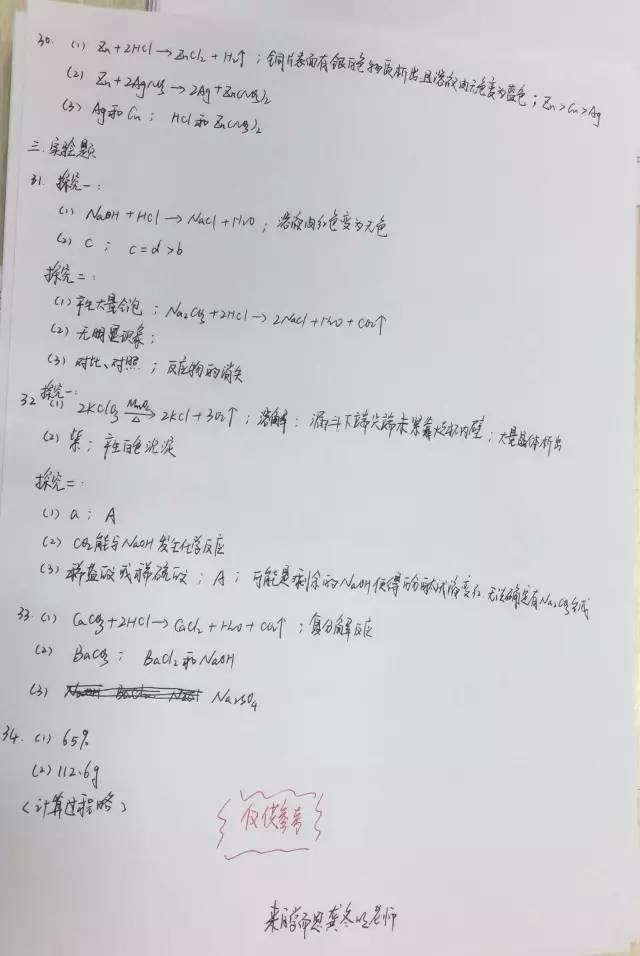 30. (1) Zn + 2HCl → ZnCl2 + H2↑ ; 铜片表面有银白色物质析出且溶液由无色变为蓝色 ; Zn > Cu > Ag
(2) Zn + 2AgNO3 → 2Ag + Zn(NO3)2
(3) Ag和Cu ; HCl和Zn(NO3)2
三. 实验题
31. 探究一 :
(1) NaOH + HCl → NaCl + H2O ; 溶液由红色变为无色
(2) C ; c = d > b
探究二 :
(1) 产生大量气泡 ; Na2CO3 + 2HCl → 2NaCl + H2O + CO2↑
(2) 无明显现象 ;
(3) 对比、对照 ; 反应物的消失
探究一 :
32 (1) 2KClO3 MnO2 △ → 2KCl + 3O2↑ ; 溶解 ; 漏斗下端尖端未紧靠烧杯内壁 ; 大量晶体析出
(2) 紫 ; 产生白色沉淀
探究二 :
(1) a ; A
(2) CO2能与NaOH发生化学反应
(3) 稀盐酸或稀硫酸 ; A ; 可能是剩余的NaOH使得酚酞试液变红 无法确定有Na2CO3生成
33. (1) CaCO3 + 2HCl → CaCl2 + H2O + CO2↑ ; 复分解反应
(2) BaCO3 ; BaCl2和NaOH
(3) Na2SO4
34. (1) 65%
(2) 112.6g
(计算过程略)
仅供参考
来自学而思龚冬 老师